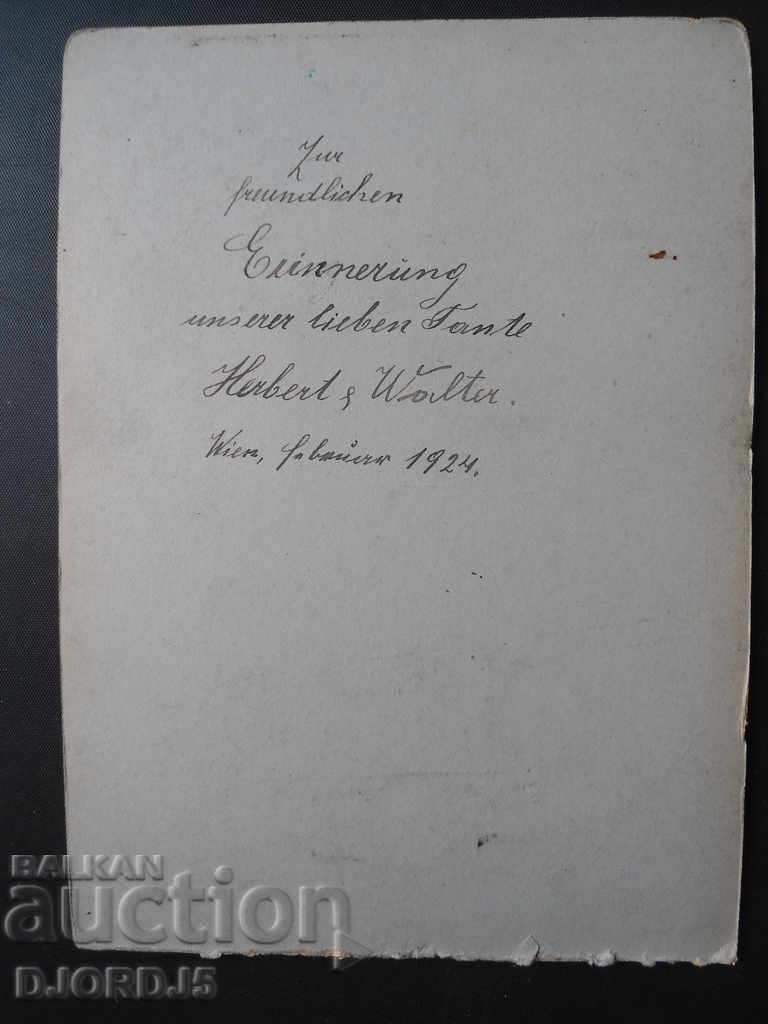 Zur
freundlichen
Erinnerung
unserer lieben Tante
Herbert & Walter.
Wien, februar 1924.
BALKAN
auction
DJORDJ5